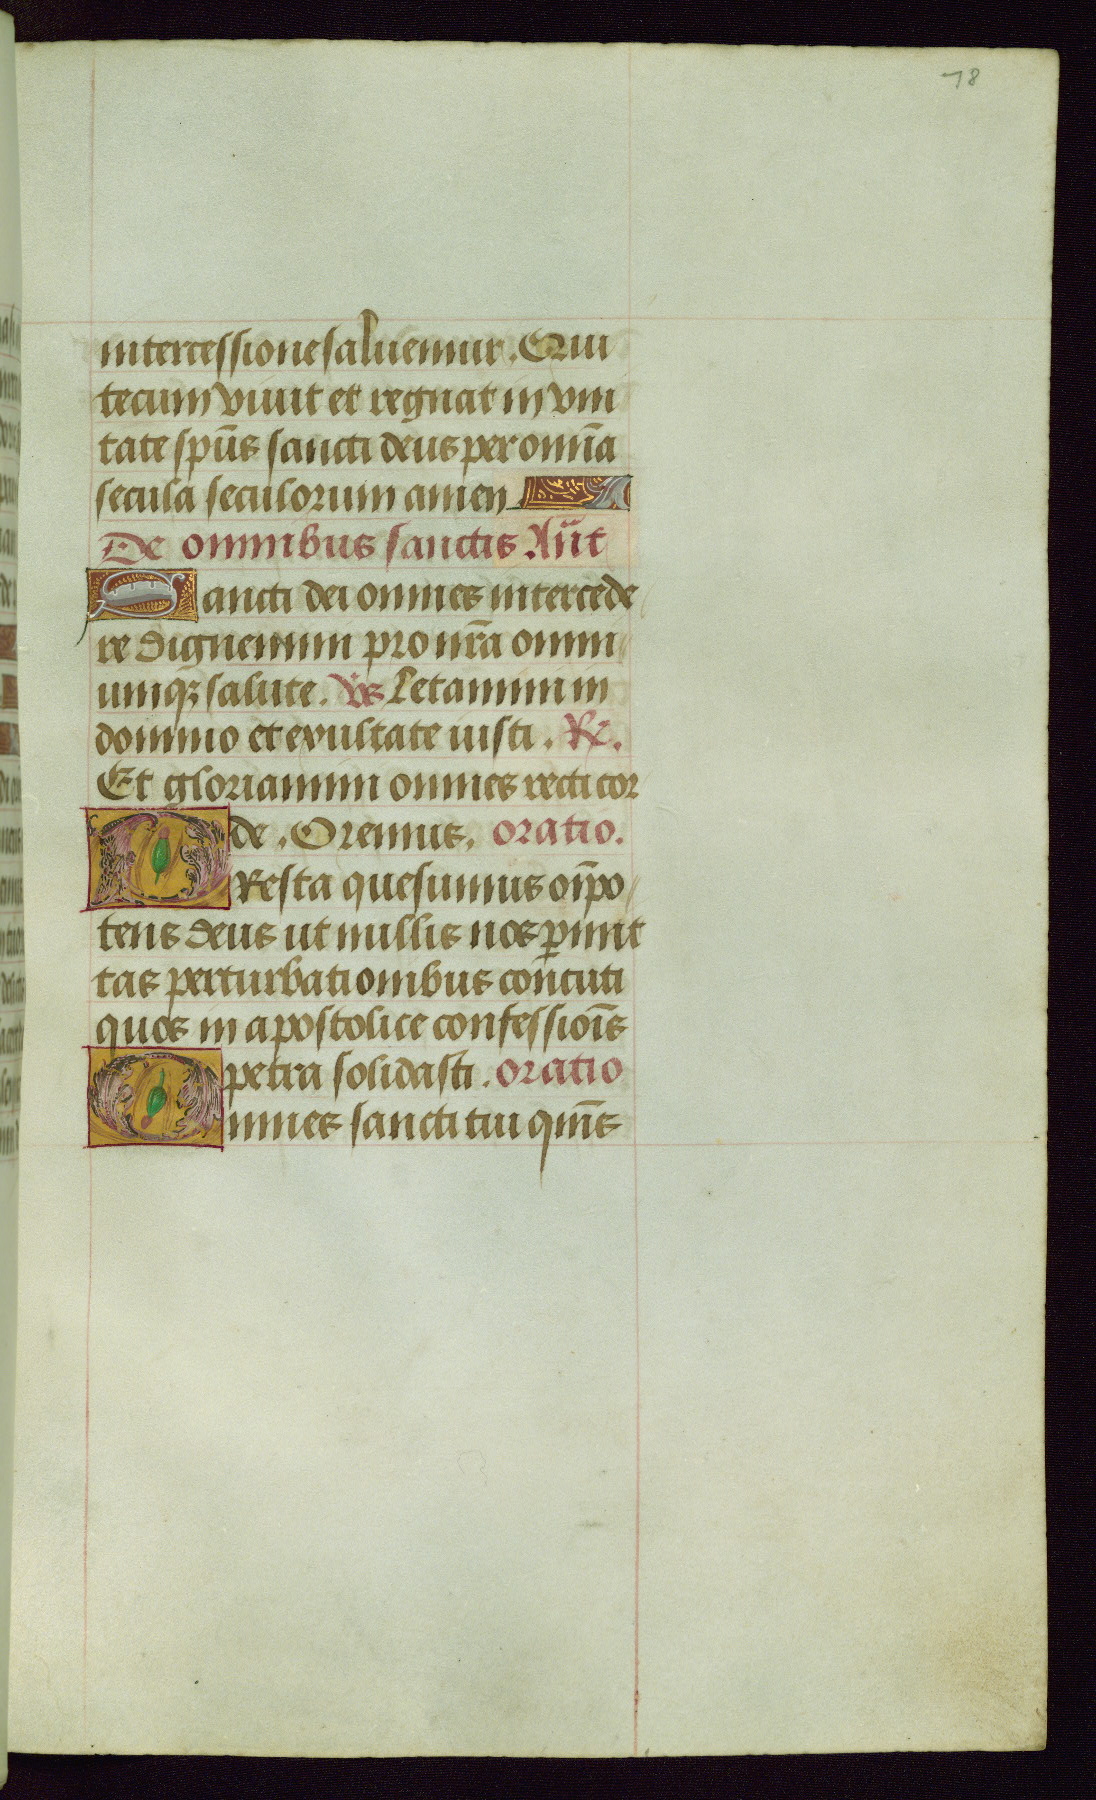 78
intercessione saluemur. Qui
tecum viuit et regnat in vni
tate spūs sancti deus per omīa
secula seculorum amen
De omnibus sanctis Añt
Sancti dei omnes intercede
re dignemini pro nr̄a omni
umqꝫ salute. Vs Letamini in
domino et exultate iusti. Re.
Et gloriamini omnes recti cor
de. Oremus. oratio.
PResta quesumus oīpo
tens deus ut nullis nos p̲mit
tas perturbationibus concuti
quos in apostolice confessiōis
petra solidasti. oratio
Omnes sancti tui quēs